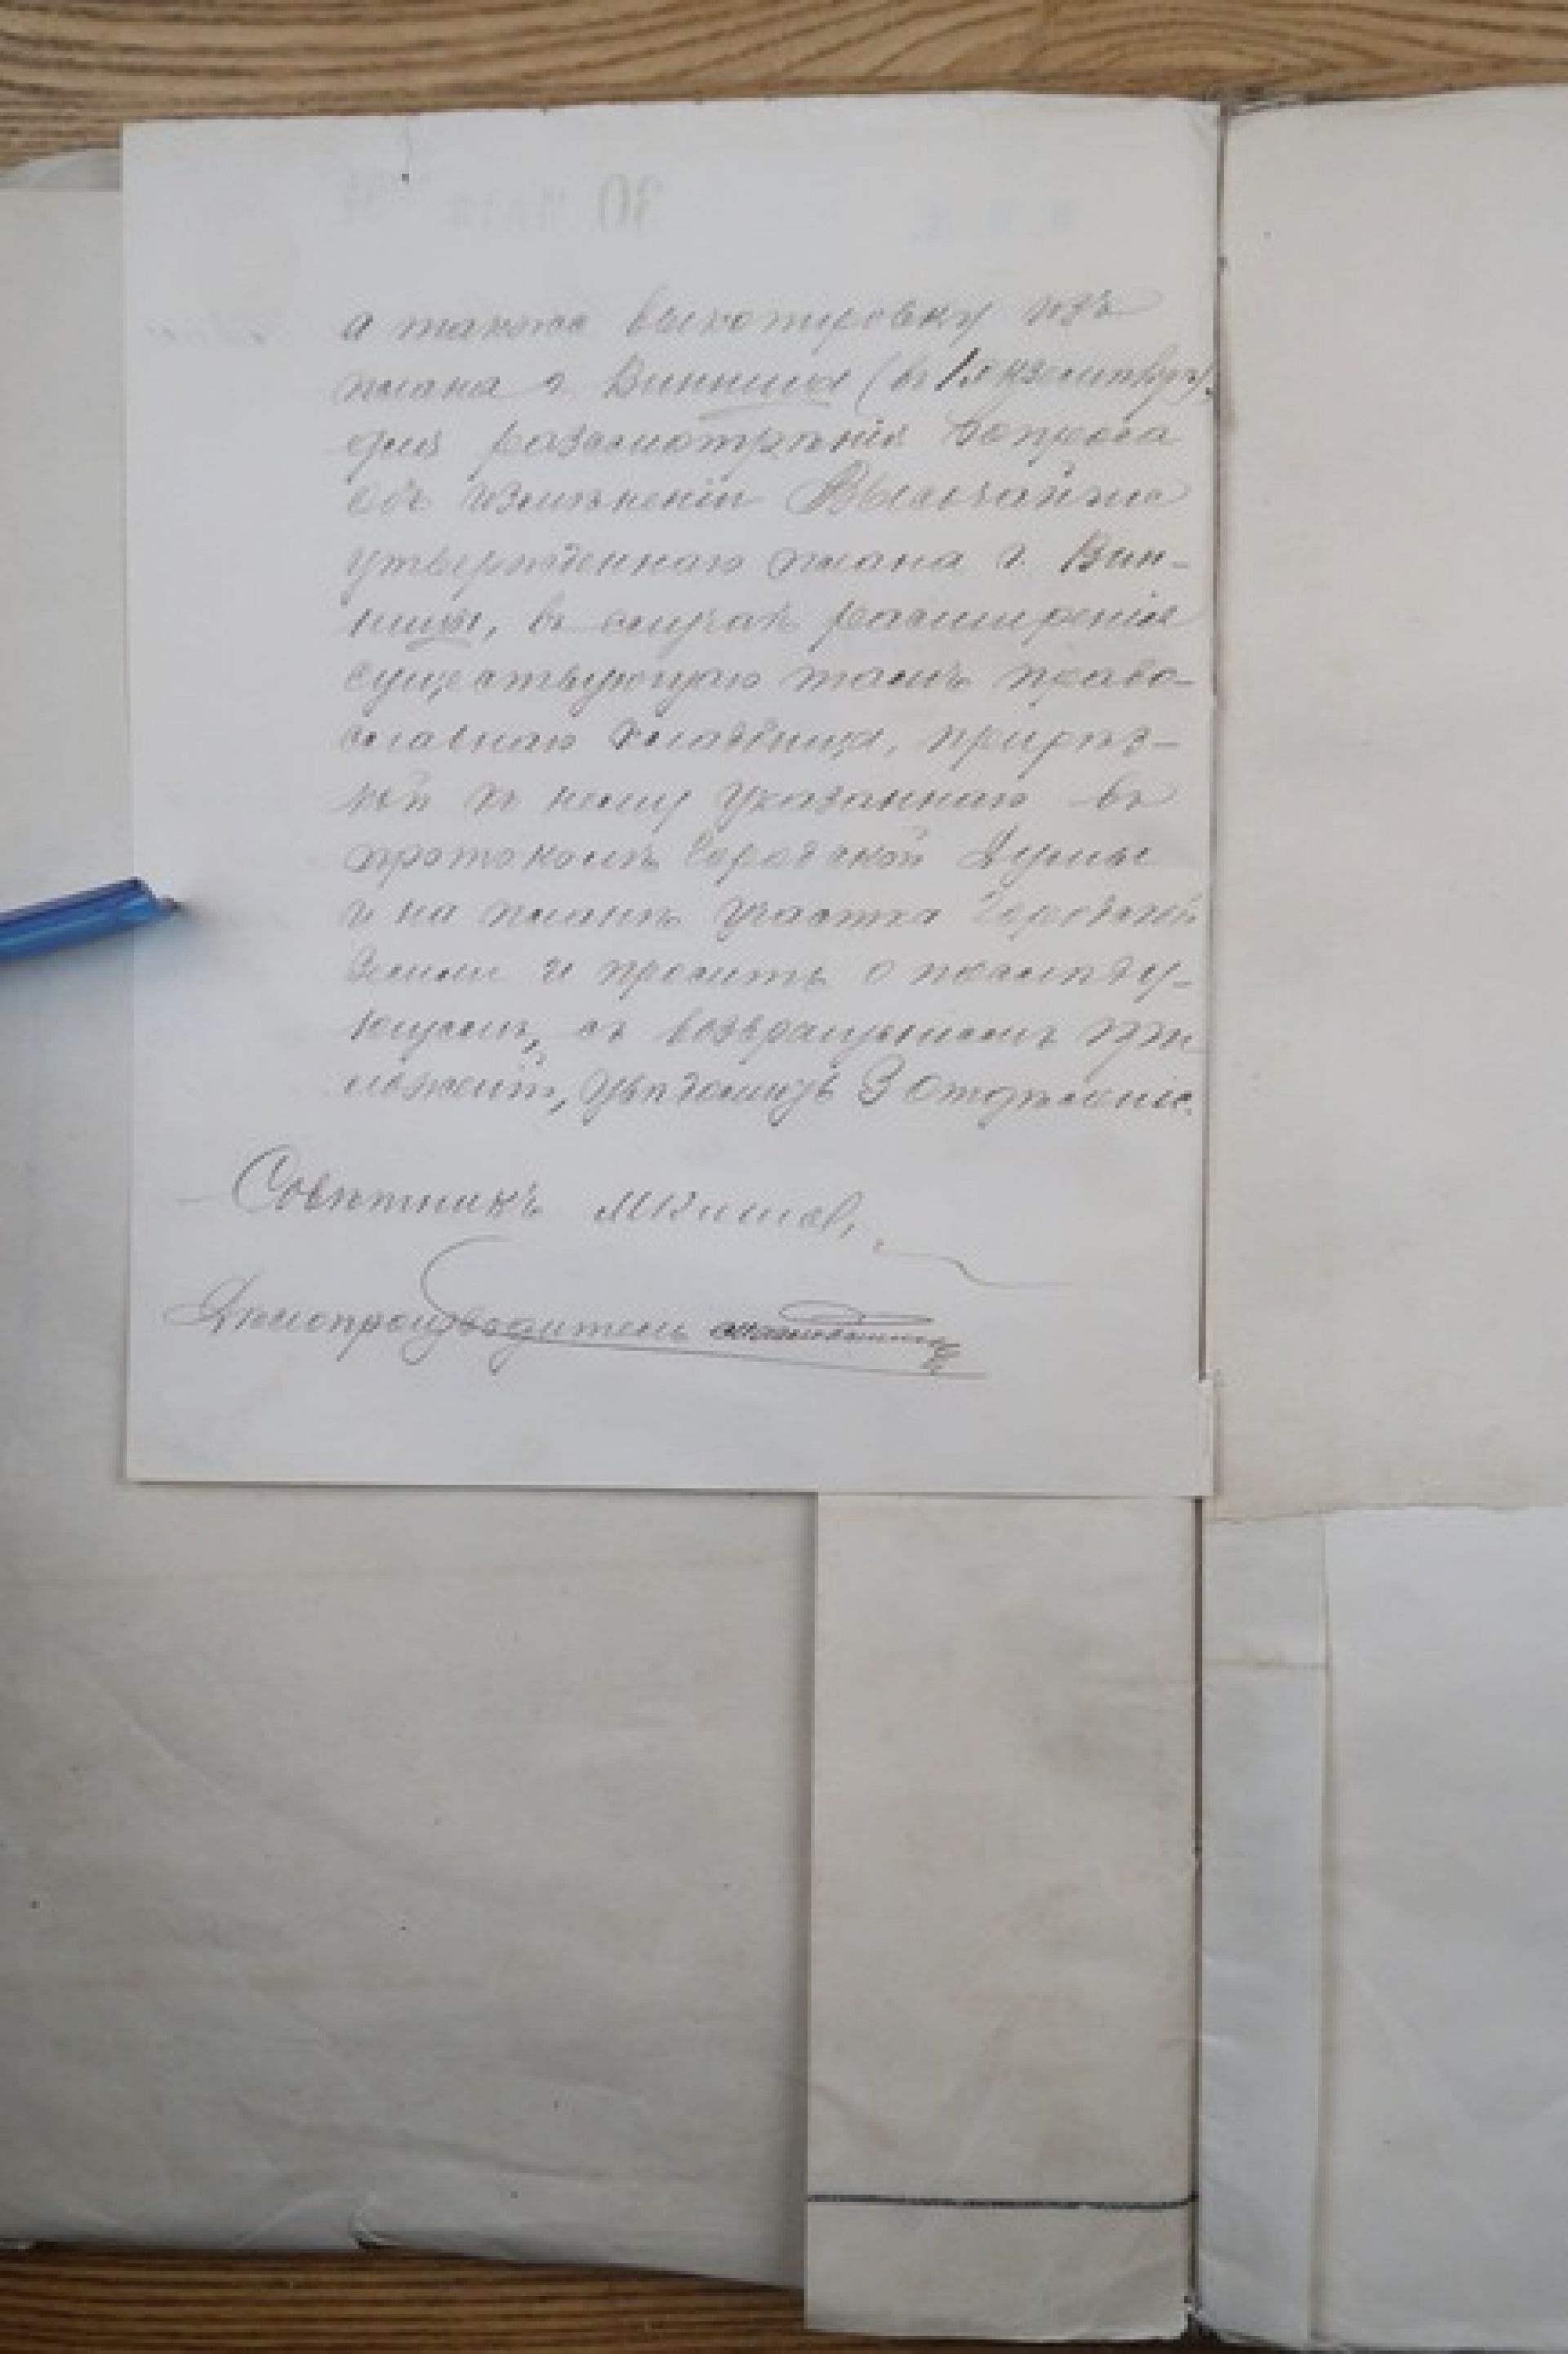 а также выкопировку изъ
плана г. Винница (въ 1 экземпляр),
для разсмотрѣнія вопроса
объ измѣненіи Высочайше
утвержденнаго плана г. Вин-
ницы, въ случаѣ расширенія
существующаго тамъ право-
славнаго кладбища, прирѣз-
кой къ нему указаннаго въ
протоколѣ Городской Думы
и на планѣ участка Городской
земли и проситъ о послѣду-
ющемъ, съ возвращеніемъ при
ложеній, увѣдомить 3 Отдѣленіе.
Совѣтникъ
Дѣлопроизводитель